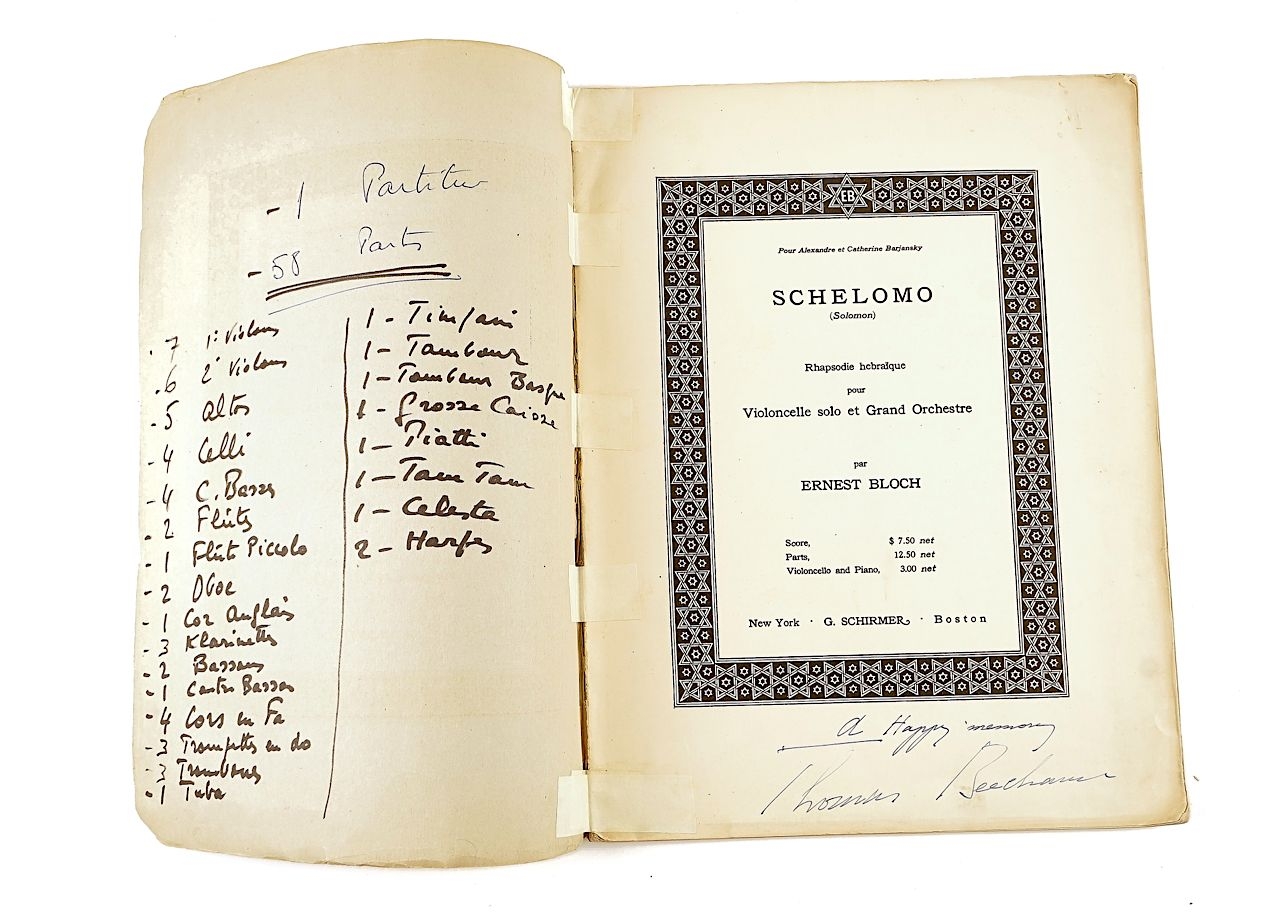 - 1 Partitur
- 58 Parts
- 7 1ers Violons
- 6 2e Violons
- 5 Altos
- 4 Celli
- 4 C. Basses
- 2 Flûtes
- 1 Flûte Piccolo
- 2 Oboe
- 1 Cor Anglais
- 3 Klarinetts
- 2 Bassons
- 1 Contre Basson
- 4 Cors en Fa
- 3 Trompettes en do
- 3 Trombones
- 1 Tuba
1 - Timpani
1 - Tambour
1 - Tambour Basque
1 - Grosse Caisse
1 - Piatti
1 - Tam Tam
1 - Celesta
2 - Harpes
EB
Pour Alexandre et Catherine Barjansky
SCHELOMO
(Solomon)
Rhapsodie hebraïque
pour
Violoncelle solo et Grand Orchestre
par
ERNEST BLOCH
Score, $ 7.50 net
Parts, 12.50 net
Violoncello and Piano, 3.00 net
New York · G. SCHIRMER · Boston
a Happy memory
Thomas Beecham